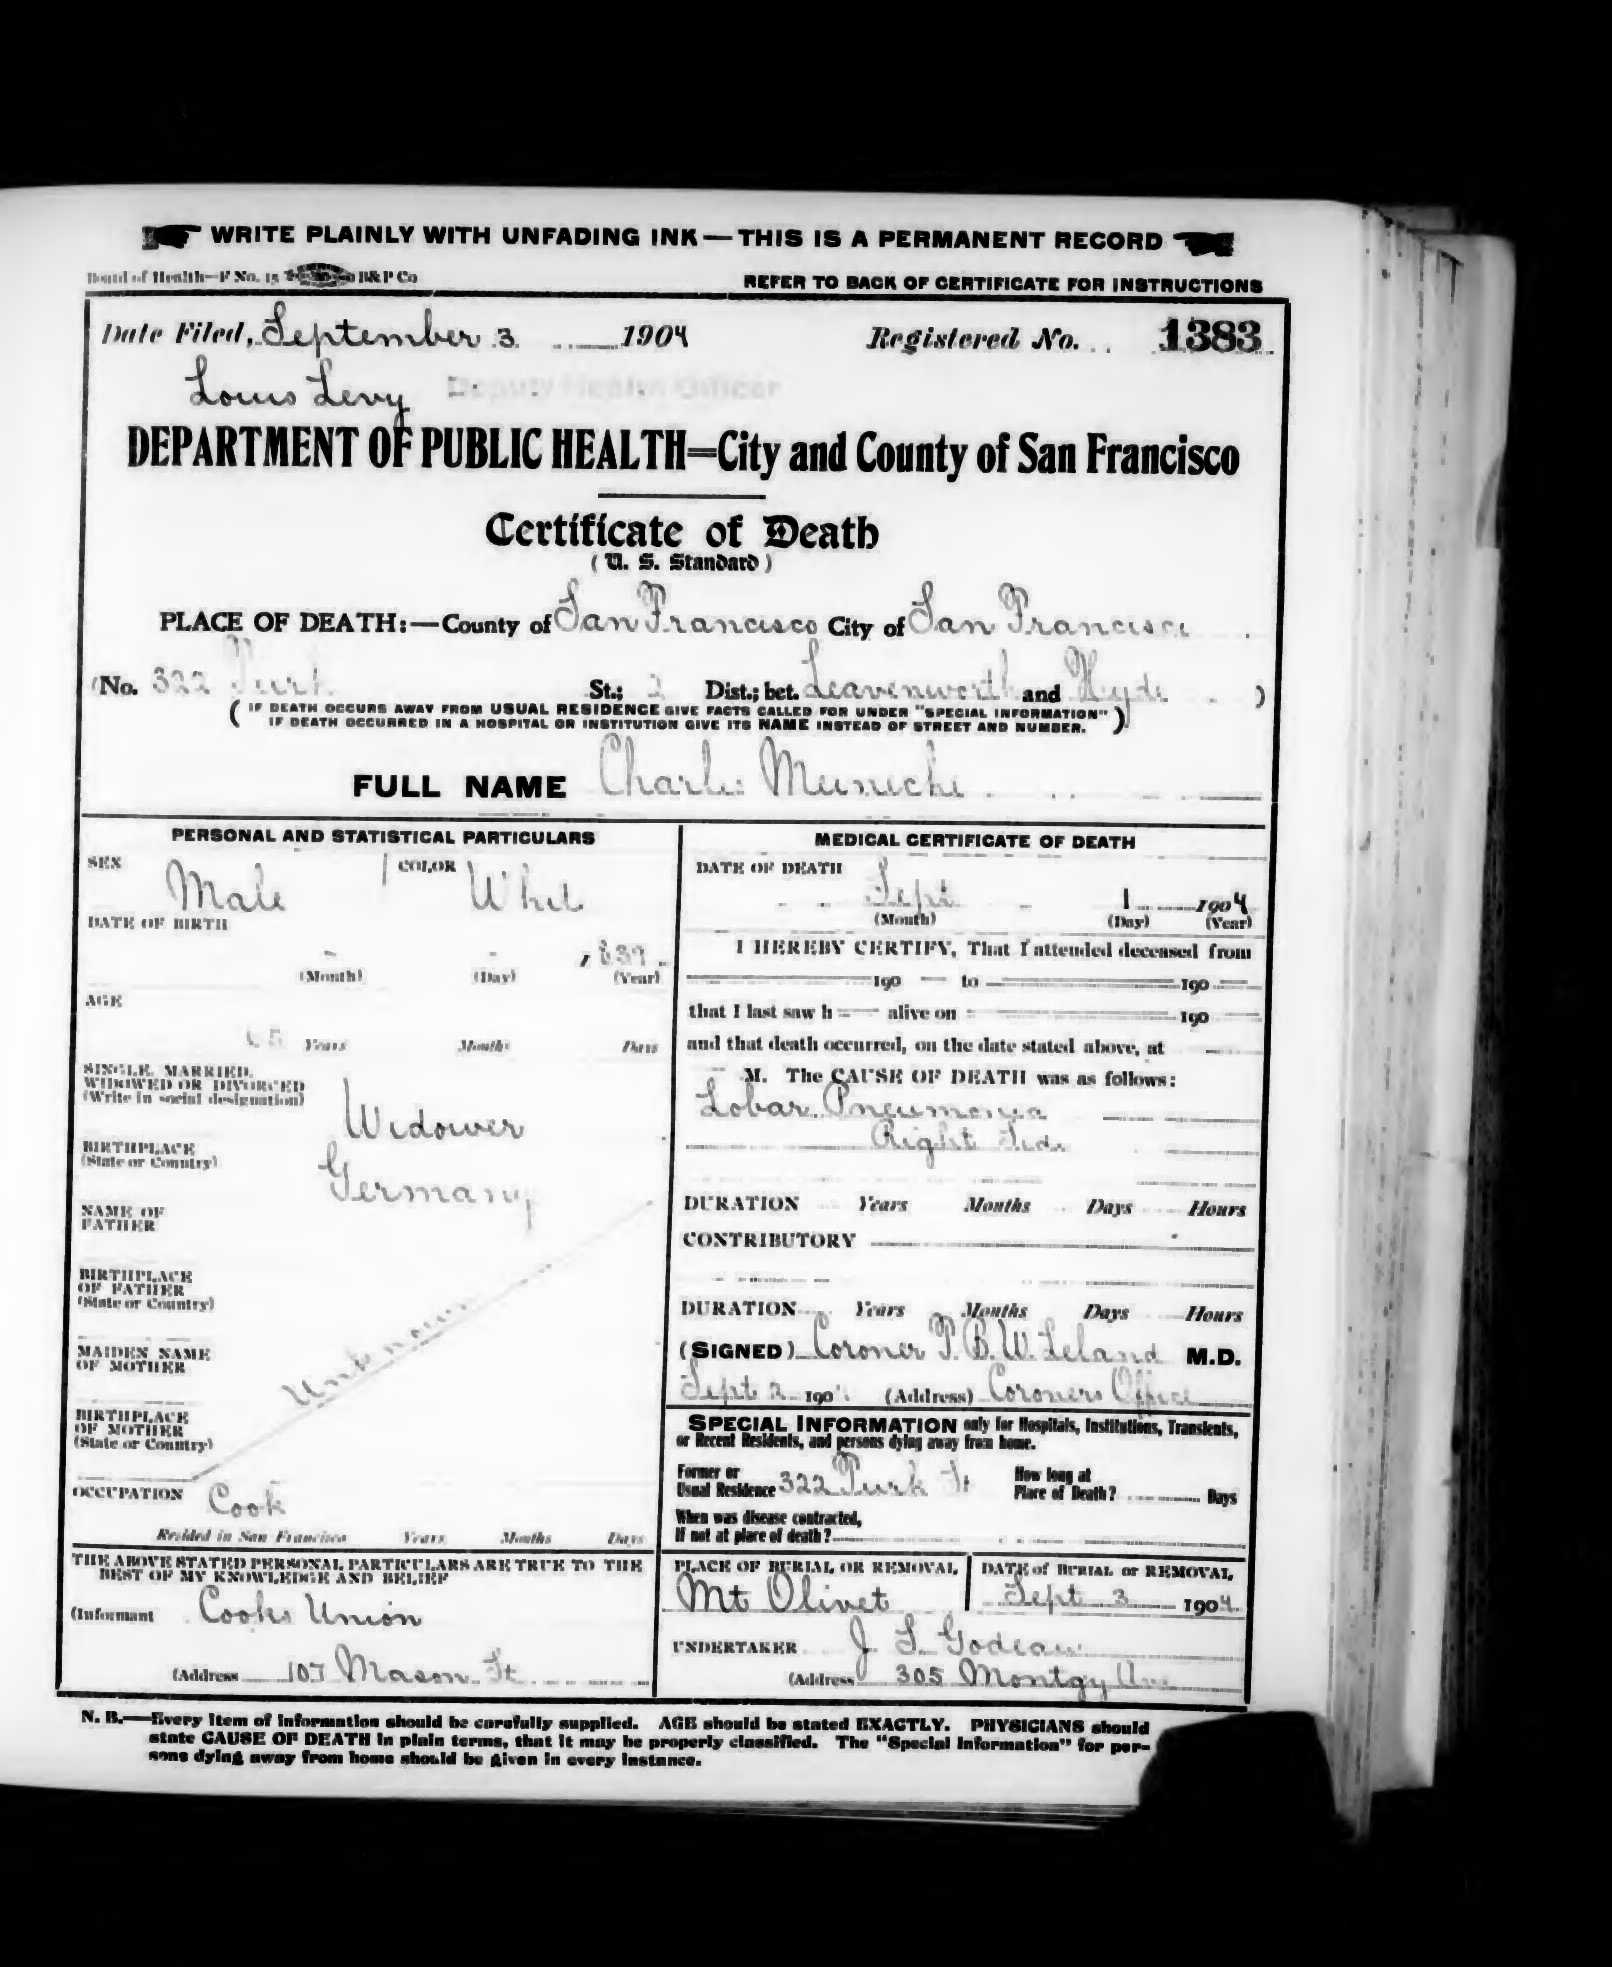 WRITE PLAINLY WITH UNFADING INK — THIS IS A PERMANENT RECORD
Board of Health—F No. 15 B&P Co
REFER TO BACK OF CERTIFICATE FOR INSTRUCTIONS
Date Filed, September 3 1904 Registered No. 1383
Louis Levy Deputy Health Officer
DEPARTMENT OF PUBLIC HEALTH=City and County of San Francisco
Certificate of Death
(U. S. Standard)
PLACE OF DEATH:—County of San Francisco City of San Francisco
(No. 322 Turk St.; 2 Dist.; bet. Leavenworth and Hyde )
( IF DEATH OCCURS AWAY FROM USUAL RESIDENCE GIVE FACTS CALLED FOR UNDER "SPECIAL INFORMATION"
IF DEATH OCCURRED IN A HOSPITAL OR INSTITUTION GIVE ITS NAME INSTEAD OF STREET AND NUMBER. )
FULL NAME Charles
PERSONAL AND STATISTICAL PARTICULARS
SEX Male COLOR White
DATE OF BIRTH
- - , 1839
(Month) (Day) (Year)
AGE
65 Years Months Days
SINGLE, MARRIED,
WIDOWED OR DIVORCED
(Write in social designation)
Widower
BIRTHPLACE
(State or Country)
Germany
NAME OF
FATHER
BIRTHPLACE
OF FATHER
(State or Country)
Unknown
MAIDEN NAME
OF MOTHER
BIRTHPLACE
OF MOTHER
(State or Country)
OCCUPATION Cook
Resided in San Francisco Years Months Days
THE ABOVE STATED PERSONAL PARTICULARS ARE TRUE TO THE
BEST OF MY KNOWLEDGE AND BELIEF
(Informant Cooks Union
(Address 107 Mason St
MEDICAL CERTIFICATE OF DEATH
DATE OF DEATH
Sept 1 1904
(Month) (Day) (Year)
I HEREBY CERTIFY, That I attended deceased from
190 — to 190
that I last saw h — alive on 190
and that death occurred, on the date stated above, at
M. The CAUSE OF DEATH was as follows:
Lobar Pneumonia
Right Side
DURATION Years Months Days Hours
CONTRIBUTORY
DURATION Years Months Days Hours
(SIGNED) Coroner T. B. W. Leland M.D.
Sept 2 1904 (Address) Coroners Office
SPECIAL INFORMATION only for Hospitals, Institutions, Transients,
or Recent Residents, and persons dying away from home.
Former or
Usual Residence 322 Turk St
How long at
Place of Death? Days
When was disease contracted,
If not at place of death?
PLACE OF BURIAL OR REMOVAL
Mt Olivet
DATE of BURIAL or REMOVAL
Sept 3 1904
UNDERTAKER J. S. Godeau
(Address 305 Montgy Ave
N. B.—Every item of information should be carefully supplied. AGE should be stated EXACTLY. PHYSICIANS should
state CAUSE OF DEATH in plain terms, that it may be properly classified. The "Special Information" for per-
sons dying away from home should be given in every instance.